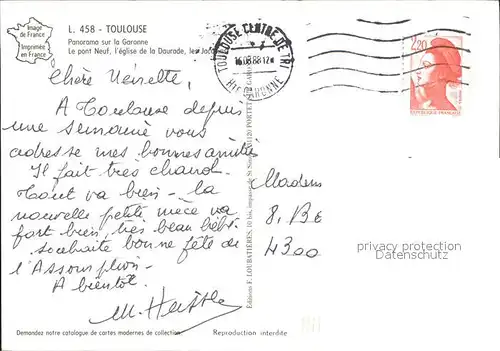 Image
de France
Imprimée
en France
L. 458 - TOULOUSE
Panorama sur la Garonne
Le pont Neuf, l'église de la Daurade, les Jaco
TOULOUSE CENTRE DE TRI
16.08.88
Hte GARONNE
2,20
REPUBLIQUE FRANCAISE
Chère
A Toulouse depuis
une semaine vous
adresse mes bonnes amitiés
Il fait très chaud.
Tout va bien - la
nouvelle petite nièce va
fort bien, très beau bébé.
souhaite bonne fête de
l'Assomption.
A bientôt.
Editions F. LOUBATIÈRES, 10 bis, impasse de St 31120 PORTET
Madame
8.
4300
privacy protection
Datenschutz
Demandez notre catalogue de cartes modernes de collection.
Reproduction interdite